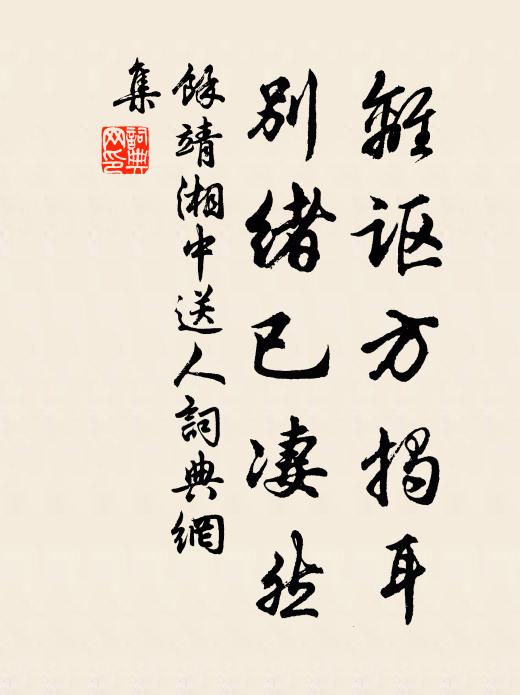 離讴方揭耳
別緒已凄然
餘靖湘中送人詞典網
集
詞典網印